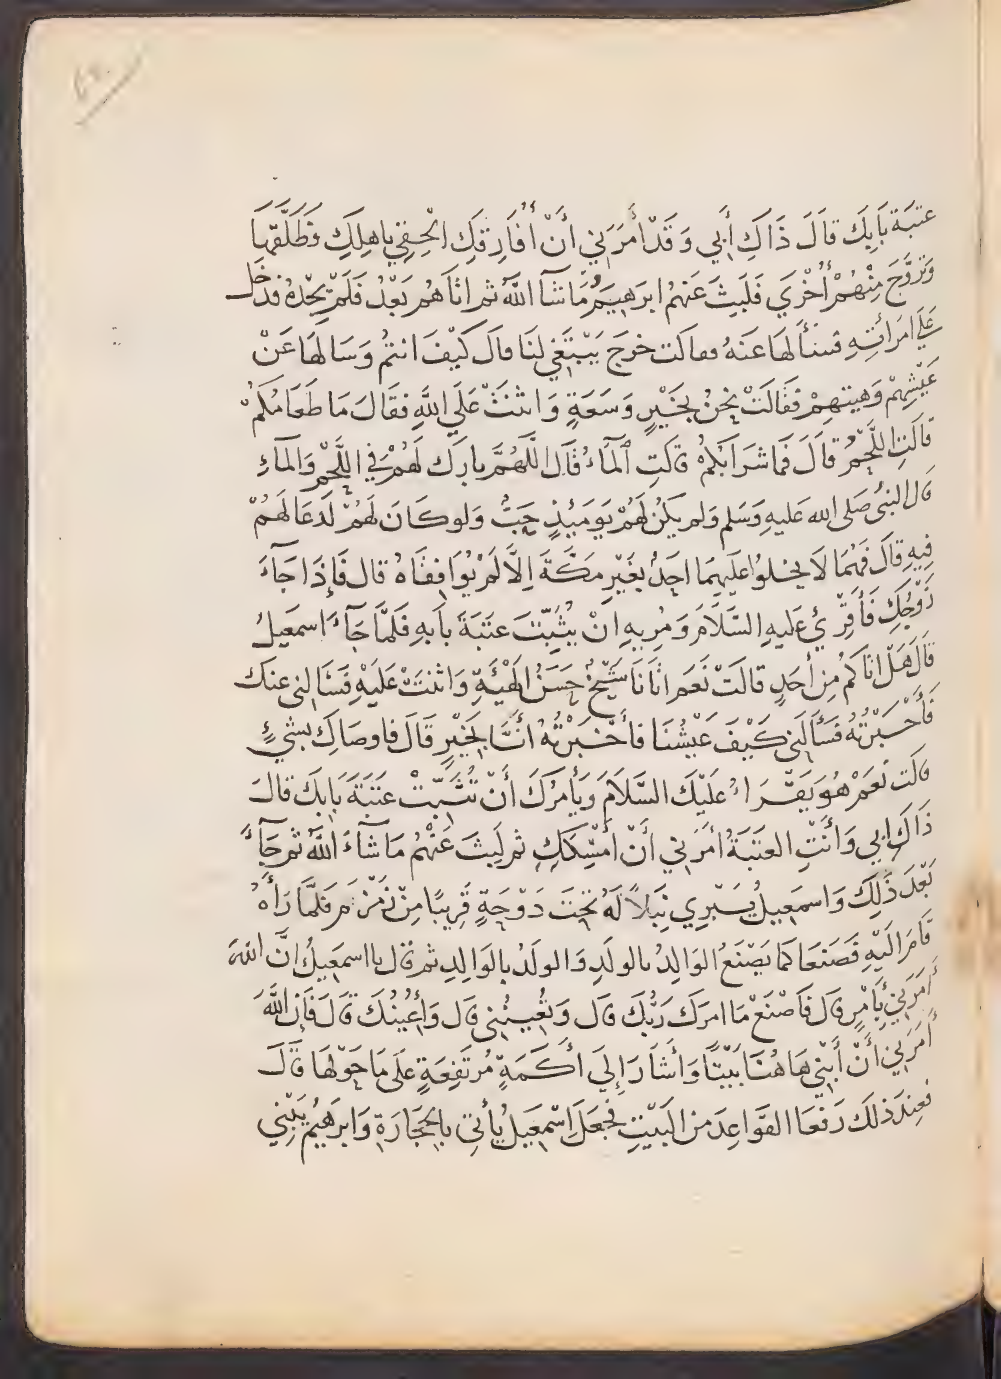 عتبَة بَابِكَ قَالَ ذَاكِ أَبِي وَقَدْ أَمَرَنِي أَنْ أُفَارِقَكِ الْحِقِي بِاهلِكِ وَطَلَّقَهَا
وَتَزَوَّجَ مِنْهُمْ أُخْرَي فَلَبِثَ عَنهُم ابرَهِيمُ مَا شَآ اللَّه ثم اتَاهُم بَعْدُ فَلَمْ يَجِدْهُ فدخَل
عَلَي امرَأتِهِ فسَأَلهَا عَنهُ فقالت خرَج يَبْتَغِي لنَا قال كَيْفَ انتُم وَسَالَهَا عَنْ
عَيْشِهِمْ وَهيئتهِمْ فقَالَتْ نحْنُ بخَيْرٍ وَسَعَةٍ وَاثنَتْ عَلَي اللَّهِ فقَالَ مَا طَعَامُكُمْ
قَالَتِ اللَّحْمُ قَالَ فَمَا شرَابُكُمْ قالتِ الْمَآءُ قَال اللَّهُمَّ بارِك لَهُمْ فِي اللَّحْمِ وَالمَآءِ
قال النبيُّ صَلى الله عَليهِ وَسَلم وَلم يَكُنْ لَهُمْ يَومَئِذٍ حَبٌّ وَلو كَانَ لَهُمْ لَدعَا لَهُمْ
فِيهِ قالَ فَهُمَا لَا يخلُوا عَلَيهِمَا احَدٌ بغَيْرِ مكَّةَ اِلَّا لَمْ يُوَافِقَاهُ قال فَإِذَا جَآءَ
زَوْجُكِ فَأَقْرِئي عَليهِ السَّلَامَ وَمُريهِ انْ يُثبِّتَ عتَبَةَ بابَهِ فَلمَّا جَآءَ اسمَعِيلُ
قَالَ هَلْ اتَاكُمْ مِن أَحَدٍ قالتْ نَعَم اتَانَا شَيْخٌ حَسَنُ الهَيْئَةِ وَاثنتْ عَليْهِ فسَالنِي عنكَ
فَأَخْبَرْتُهُ فسَأَلَنِي كَيْفَ عَيْشُنَا فأَخْبَرْتُهُ أَنَّا بخَيْرٍ قَالَ فاوصَاكِ بشيْءٍ
قالت نَعَمْ هُوَ يَقْرَاءُ عَلَيْكَ السَّلَامَ وَيَأمُرُكَ أَنْ تُثَبِّتْ عتَبَةَ بَابِكَ قالَ
ذَاكَ ابِي وَأَنْتِ العتَبَةُ أمَرَنِي أَنْ أُمْسِكَكِ ثم لَبِثَ عَنْهُم مَا شَآءَ اللَّه ثم جَآءَ
بَعْدَ ذَلِكَ وَاسمَعِيلُ يَبْرِي نَبلاً لَهُ تحْتَ دَوْحَةٍ قَرِيبًا مِنْ زَمْزَم فَلَمَّا رَأَهُ
قَامَ اليْهِ فَصَنَعَا كمَا يَصْنَعُ الوَالِدُ بالولَدِ وَالولَدُ بِالوَالِدِ ثم قال يا اسمَعِيلُ انَّ اللَّهَ
أَمَرَنِي بِأَمْرٍ قال فَاصْنَعْ مَا امرَك رَبُّكَ قال وَتُعِينُنِي قال وَأُعِينُكَ قَالَ فَإِن اللَّهَ
أَمَرَنِي أَنْ أَبْنِي هَاهُنَا بَيْتًا وَأَشَارَ إِلَي أَكَمَةٍ مُرْتَفِعَةٍ عَلَى مَا حَوْلهَا قَالَ
فعِندَ ذلكَ رَفعَا القوَاعِدَ من البَيْتِ فَجَعَلَ اِسْمَعِيلُ يَأتِي بالحِجَارَةِ وَابرَهِيمُ يَبْنِي